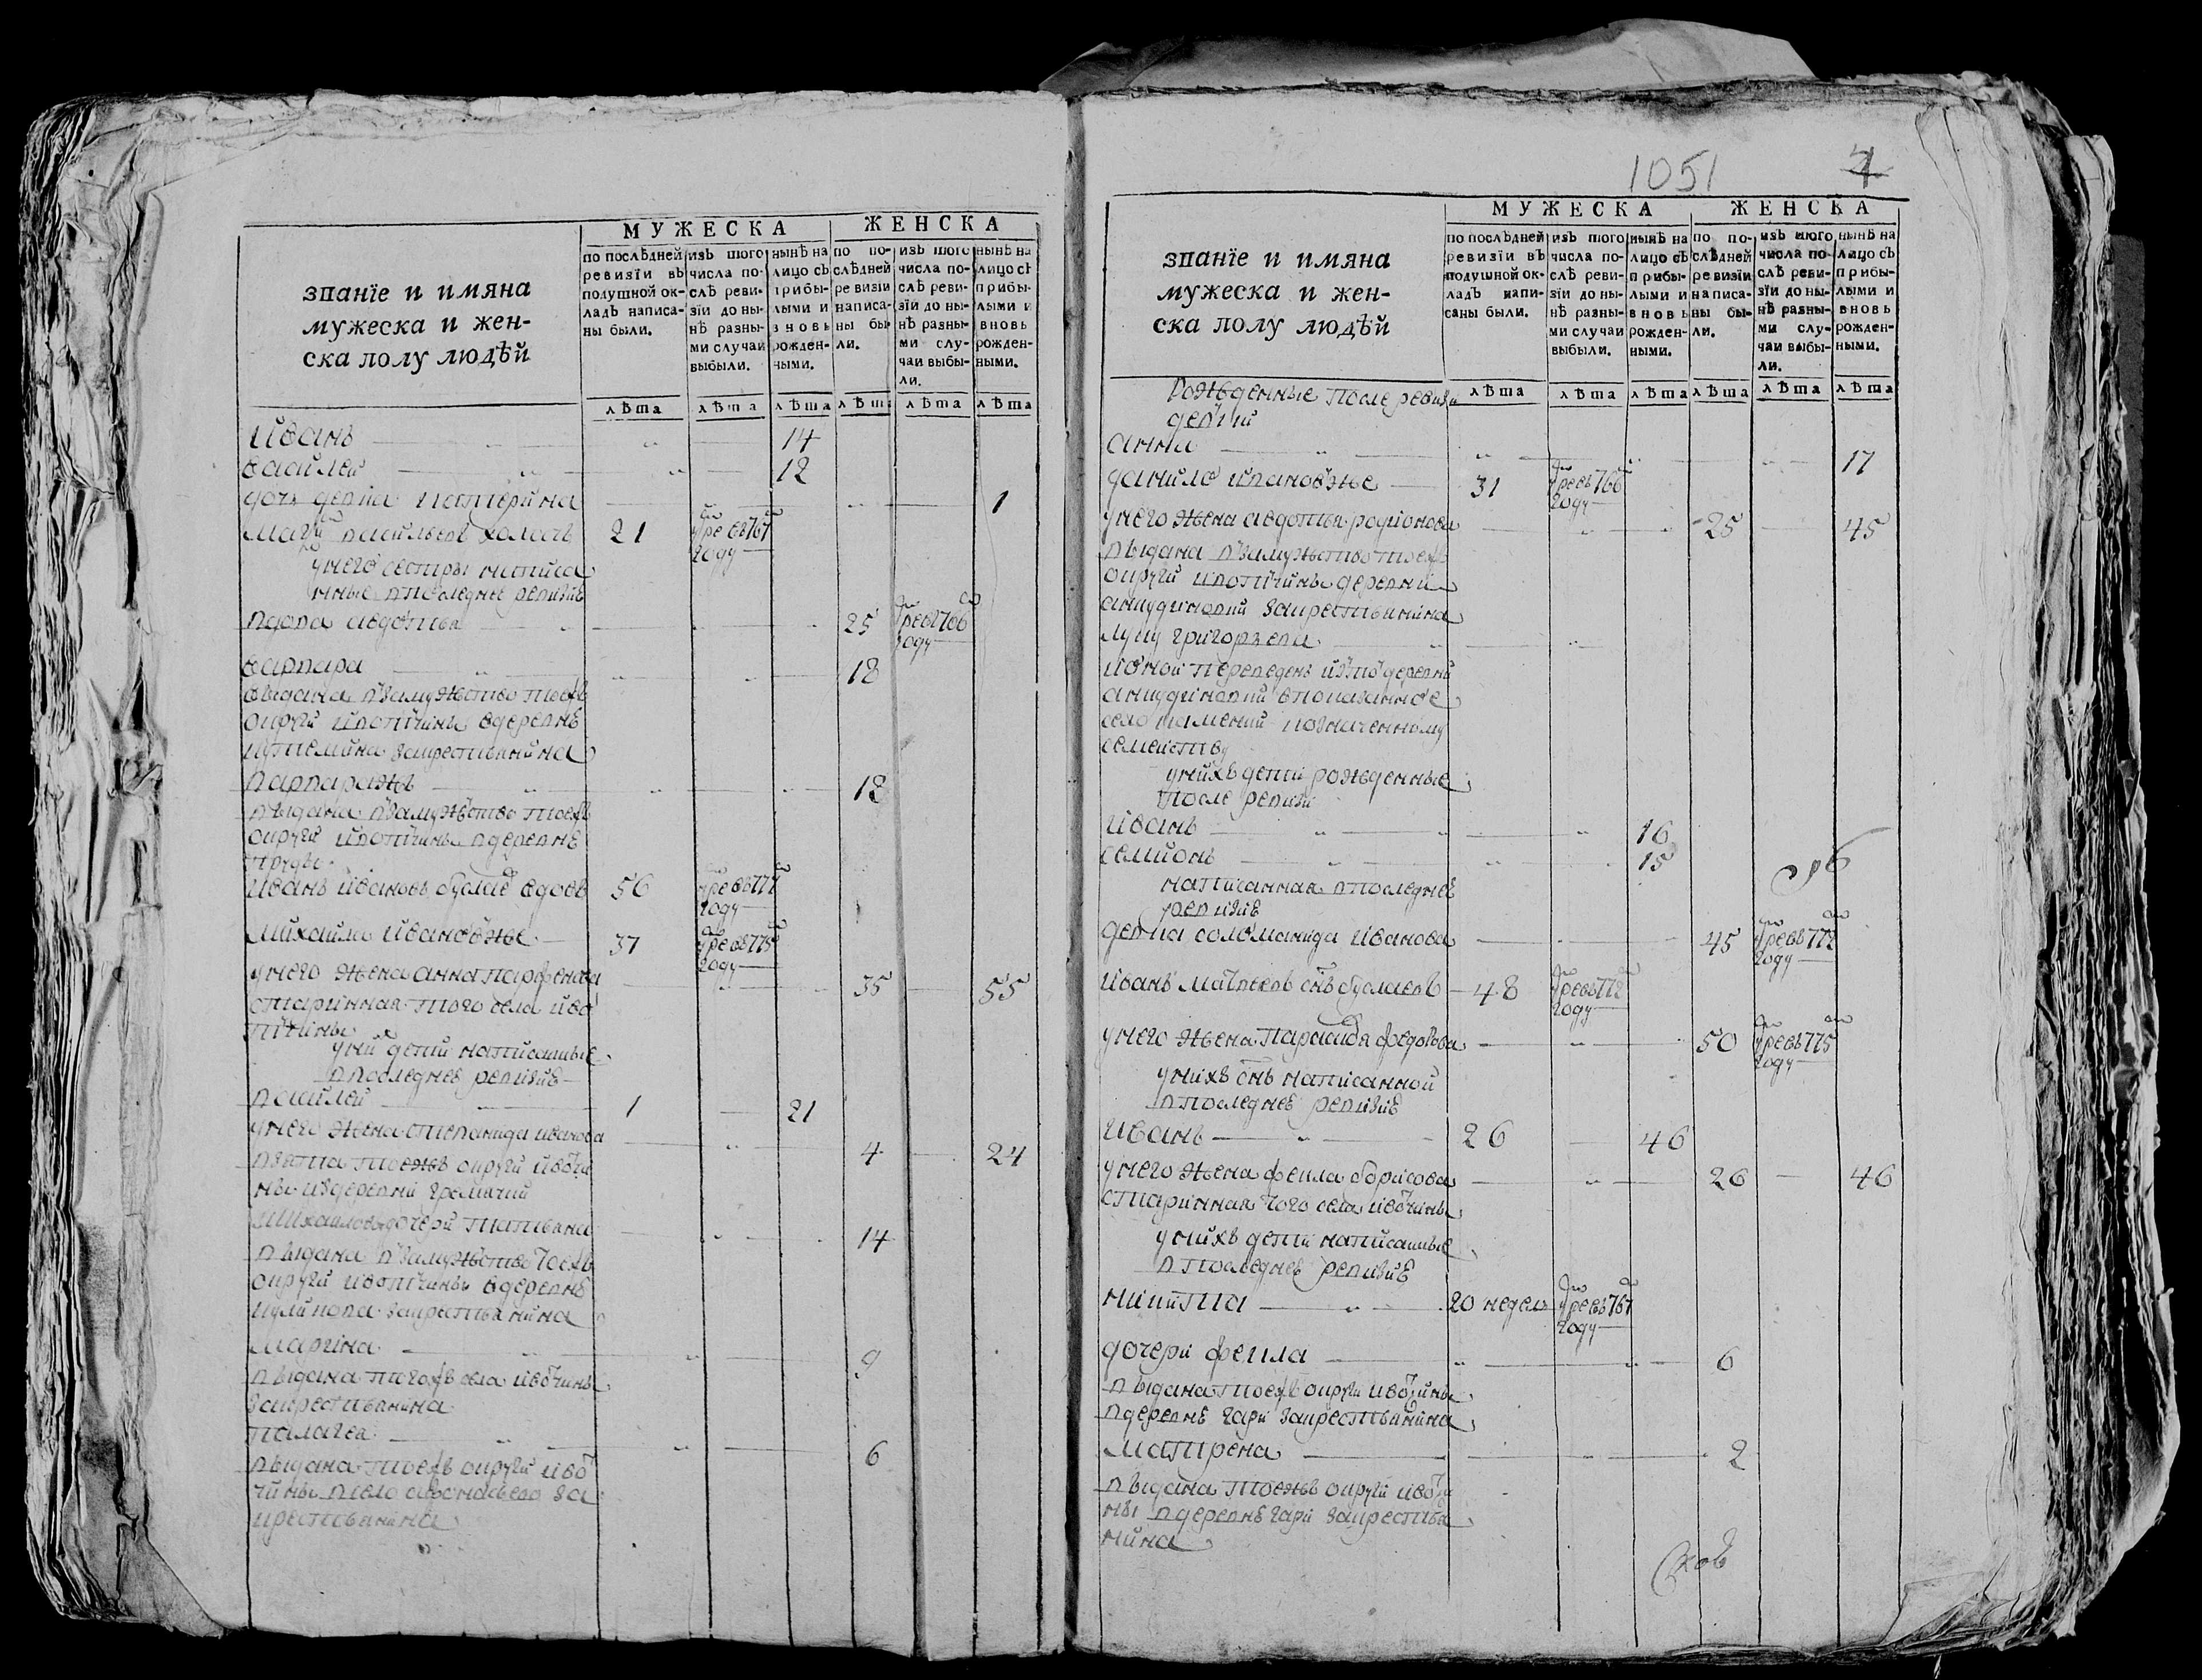 МУЖЕСКА ЖЕНСКА
званїе и имяна
мужеска и жен-
ска полу людѣй
по послѣдней ревизїи въ подушной окладъ написаны были.
изъ того числа послѣ ревизїи до нынѣ разными случаи выбыли.
нынѣ на лицо съ прибылыми и вновь рожденными.
по послѣдней ревизїи написаны были.
изъ того числа послѣ ревизїи до нынѣ разными случаи выбыли.
нынѣ на лицо съ прибылыми и вновь рожденными.
лѣта лѣта лѣта лѣта лѣта лѣта
Иванъ 14
василей 12
дочь девка катерина 1
васильевъ холостъ 21 767 году
у него сестры написа
нные в последнее ревизие
вдова авдотья 25 766 году
варвара 18
выдана в замужство тоежъ
округи и вотчины в деревнѣ
за крестьянина
варвара жъ 12
выдана в замужство тоежъ
округи и вотчины в деревнѣ
пруды
Иванъ ивановъ вдовъ 56 777 году
Михайла ивановъ же 37 775 году
у него жена анна парфенова 35 55
старинная того села и во
тчины
у них дети написанные
в последнее ревизие
василей 1 21
у него жена степанида иванова 4 24
взята тоежъ округи и вотчи
ны из деревни гремячий
Михайловы дочери татьяна 14
выдана в замужство тоежъ
округи и вотчины в деревнѣ
куликова за крестьянина
марина 9
выдана тогожъ села и вотчины
за крестьянина
палагея 6
выдана тоежъ округи и во
тчины в село за
крестьянина
1051
МУЖЕСКА ЖЕНСКА
званїе и имяна
мужеска и жен-
ска полу людѣй
по послѣдней ревизїи въ подушной окладъ написаны были.
изъ того числа послѣ ревизїи до нынѣ разными случаи выбыли.
нынѣ на лицо съ прибылыми и вновь рожденными.
по послѣдней ревизїи написаны были.
изъ того числа послѣ ревизїи до нынѣ разными случаи выбыли.
нынѣ на лицо съ прибылыми и вновь рожденными.
лѣта лѣта лѣта лѣта лѣта лѣта
Рожденные после ревизи
девки
анна 17
данило ивановъ же 31 766 году
у него жена авдотья родионова 25 45
выдана в замужство тоежъ
округи и вотчины деревни
за крестьянина
луку григорьева
и оной переведенъ из той деревни
в показанное
село по означенному
семейству
у них дети рожденные
после ревизи
Иванъ 16
семионъ 15
написанная в последнее
ревизие
девка соломанида иванова 45 772 году
Иванъ матвеевъ снъ буслаевъ 48 772 году
у него жена парасковя федотова 50 775 году
у них снъ написанной
в последнее ревизие
Иванъ 26 46
у него жена фекла борисова 26 46
старинная того села и вотчины
у них дети написанные
в последнее ревизие
никита 20 недель 767 году
дочери фекла 6
выдана тоежъ округи и вотчины
в деревнѣ гари за крестьянина
матрена 2
выдана тоежъ округи и вотчи
ны в деревнѣ гари за крестья
нина